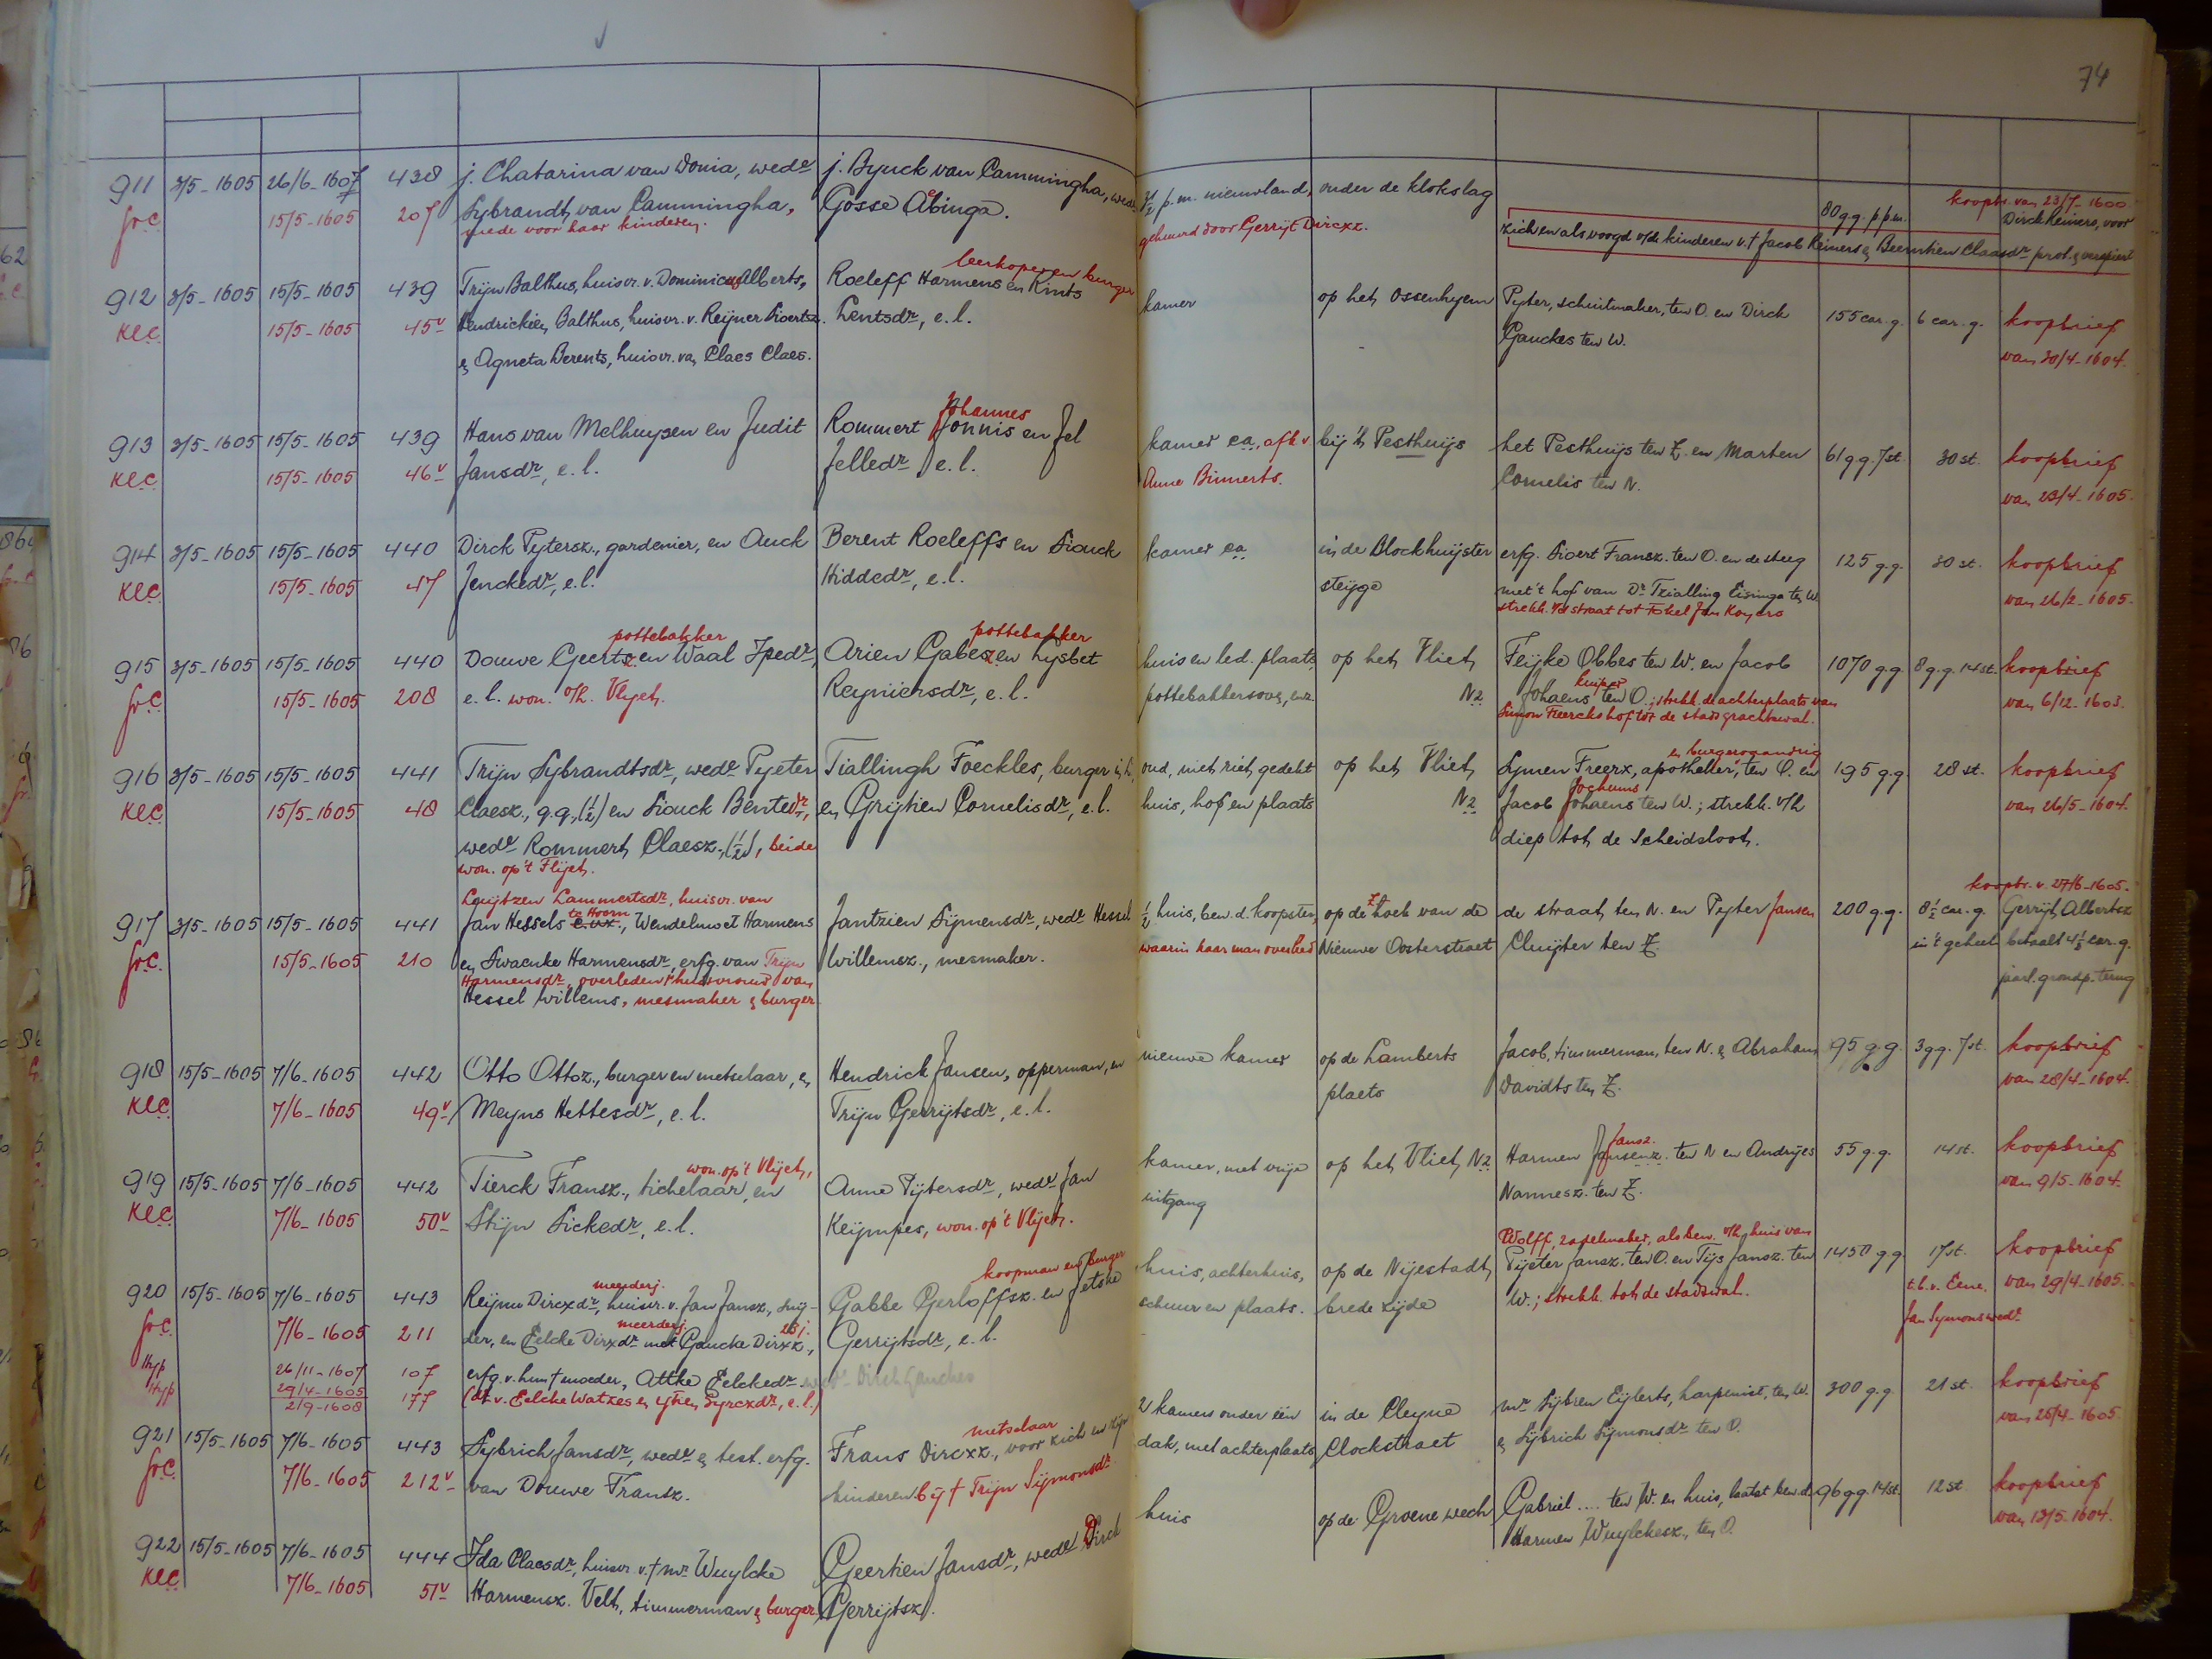 74
911 3/5-1605 26/6-1607 438 j. Chatarina van Donia, wede j. Bynck van Cammingha, wede p.m. nieuwland, onder de klokslag 80 g.g. p.p.m. koopbr. van 23/7-1600
GrC 15/5-1605 207 Sybrandt van Cammingha, Gosse Abinga. gehuurd door Gerryt Dircxz. Dirck Reiners, voor
mede voor haar kinderen. zich en als voogd o/de kinderen v. † Jacob Reiners & Beernhien Claasdr prot. &
leerkoper en burger
912 3/5-1605 15/5-1605 439 Trijn Balthus, huisvr. v. Dominicus Alberts, Roeleff Harmens en Rints kamer op het Ossenhyem Pyter, schuitmaker, ten O. en Dirck 155 car. g. 6 car. g. koopbrief
KleC 15/5-1605 45v Hendrickien Balthus, huisvr. v. Reijner Sioertsz. Lentsdr, e.l. Gauckes ten W. van 30/4-1604.
& Agneta Berents, huisvr. van Claes Claes.
Johannes
913 3/5-1605 15/5-1605 439 Hans van Melhuysen en Judit Rommert Jonnis en Jel kamer ca, afk. v bij 't Pesthuys het Pesthuys ten Z. en Marten 61 gg. 7 st. 30 st. koopbrief
KleC 15/5-1605 46v Jansdr, e.l. Jelledr, e.l. Anne Binnerts. Cornelis ten N. van 23/4-1605.
914 3/5-1605 15/5-1605 440 Dirck Pytersz., gardenier, en Auck Berent Roeleffs en Siouck kamer ca in de Blockhuijster erfg. Sioert Fransz. ten O. en de steeg 125 g.g. 30 st. koopbrief
KleC 15/5-1605 47 Jenckedr, e.l. Hiddedr, e.l. steijge met 't hof van Dr Tzialling Eisinga ten W. van 26/2-1605.
strekk. v/d straat tot Jan Koyers
pottebakker pottebakker
915 3/5-1605 15/5-1605 440 Douwe Geertsz en Waal Ipedr, Arien Gabesz en Lysbet huis en led. plaats, op het Vliet Feijke Obbes ten W. en Jacob 1070 g.g. 8 g.g. 14 st. koopbrief
kuiper
GrC 15/5-1605 208 e.l. won. o/h. Vlyet. Reyniersdr, e.l. pottebakkersoven, enz. Nz Johaens ten O.; strekk. d. achterplaats van van 6/12-1603.
Simon Feercks hof tot de stads grachtswal.
en burgervaandrig
916 3/5-1605 15/5-1605 441 Trijn Sybrandtsdr, wede Pyeter Tiallingh Foeckles, burger oud, met riet gedekt op het Vliet Symen Freerx, apotheker, ten O. en 195 g.g. 28 st. koopbrief
Jochums
KleC 15/5-1605 48 Claesz., g.g. (½) en Siouck Bentedr, en Grijtien Cornelisdr, e.l. huis, hof en plaats Nz Jacob Johaens ten W.; strekk. v/h van 26/5-1604.
wede Rommert Claesz. (½), beide diep tot de Scheidsloot.
won. op 't Flijet.
Luijtzen Lammertsdr, huisvr. van koopbr. v. 27/6-1605.
te Hoorn
917 3/5-1605 15/5-1605 441 Jan Hessels e. ux., Wendelmoet Harmens Jantzien Sijmensdr, wede Hessel ½ huis, bew. d. koopster, op de Z. hoek van de de straat ten N. en Pyter Jansen 200 g.g. 8½ car. g. Gerrijt Albertsz
GrC 15/5-1605 210 en Swaenke Harmensdr, erfg. van Trijn Willemsz., mesmaker. waarin haar man overleed Nieuwe Oosterstraet Cluijter ten Z. in 't geheel betaalt 4½ car. g.
Harmensdr, overleden huisvrouw van jaarl. grondp. terug
Hessel Willems, mesmaker & burger
918 15/5-1605 7/6-1605 442 Otto Ottoz., burger en metselaar, en Hendrick Jansen, opperman, en nieuwe kamer op de Lamberts Jacob, timmerman, ten N. & Abraham 95 g.g. 3 g.g. 7 st. koopbrief
KleC 7/6-1605 49v Meyns Hettesdr, e.l. Trijn Gerrijtsdr, e.l. plaets Davidts ten Z. van 28/4-1604.
won. op 't Vlijet, Jansz.
919 15/5-1605 7/6-1605 442 Tierck Fransz., tichelaar, en Anna Pijtersdr, wede Jan kamer, met vrije op het Vliet Nz Harmen Jansenz. ten N en Andrijes 55 g.g. 14 st. koopbrief
KleC 7/6-1605 50v Stijn Sickedr, e.l. Keijmpes, won. op 't Vlijet. uitgang Nannesz. ten Z. van 9/5-1604.
meerderj. koopman en burger Wolff, zadelmaker, als bew. v/h huis van
920 15/5-1605 7/6-1605 443 Reijnu Dircxdr, huisvr. v. Jan Jansz., snij- Gabbe Gerloffsz. en Jetske huis, achterhuis, op de Nijestadt, Pijeter Jansz. ten O. en Tijs Jansz. ten 1450 g.g. 17 st. koopbrief
meerderj. 23 j.
GrC 7/6-1605 211 der, en Eelcke Dirxdr met Gaucke Dirxz., Gerrijtsdr, e.l. schuur en plaats. brede zijde W.; strekk. tot de stadswal. t.b.v. Eene, van 29/4-1605.
Jan Symons wede
Hyp 26/11-1607 107 erfg. v. hun † moeder, Attke Eelckedr wede Dirck Gauckes
Hyp 29/4-1605
2/9-1608 177 (dr v. Eelcke Watzes en Syrcxdr, e.l.)
metselaar
921 15/5-1605 7/6-1605 443 Sybrich Jansdr, wede & test. erfg. Frans Dircxz., voor zich en zijn 2 kamers onder één in de Cleyne mr Sijbren Eijlerts, harpenist, ten W. 300 g.g. 21 st. koopbrief
GrC 7/6-1605 212v van Douwe Fransz. kinderen bij † Trijn Sijmonsdr dak, met achterplaats Clockstraet & Sijbrich Sijmonsdr ten O. van 25/4-1605
922 15/5-1605 7/6-1605 444 Ida Claesdr, huisvr. v. † mr Wuylcke Geertien Jansdr, wede Dirck huis op de Groene wech Gabriel .... ten W. en huis, laatst bew. d. 96 g.g. 14 st. 12 st. koopbrief
KleC 7/6-1605 51v Harmensz. Velt, timmerman & burger. Gerrijtsz. Harmen Wuylckesz., ten O. van 13/5-1604.